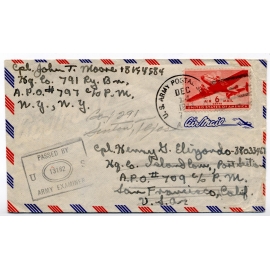 Cpl. John T. Moore 18154584
Hq. Co. 791 Ry. Bn.
A.P.O. #797 c/o P.M.
N.Y., N.Y.
U.S. ARMY POSTAL
DEC
6¢
UNITED STATES OF AMERICA
Air Mail
PASSED BY
U S
ARMY EXAMINER
Cpl. Henry G. Elizondo
Hq. Co. Island Com.
A.P.O. #709 c/o P.M.
San Francisco, Calif.
U.S.A.